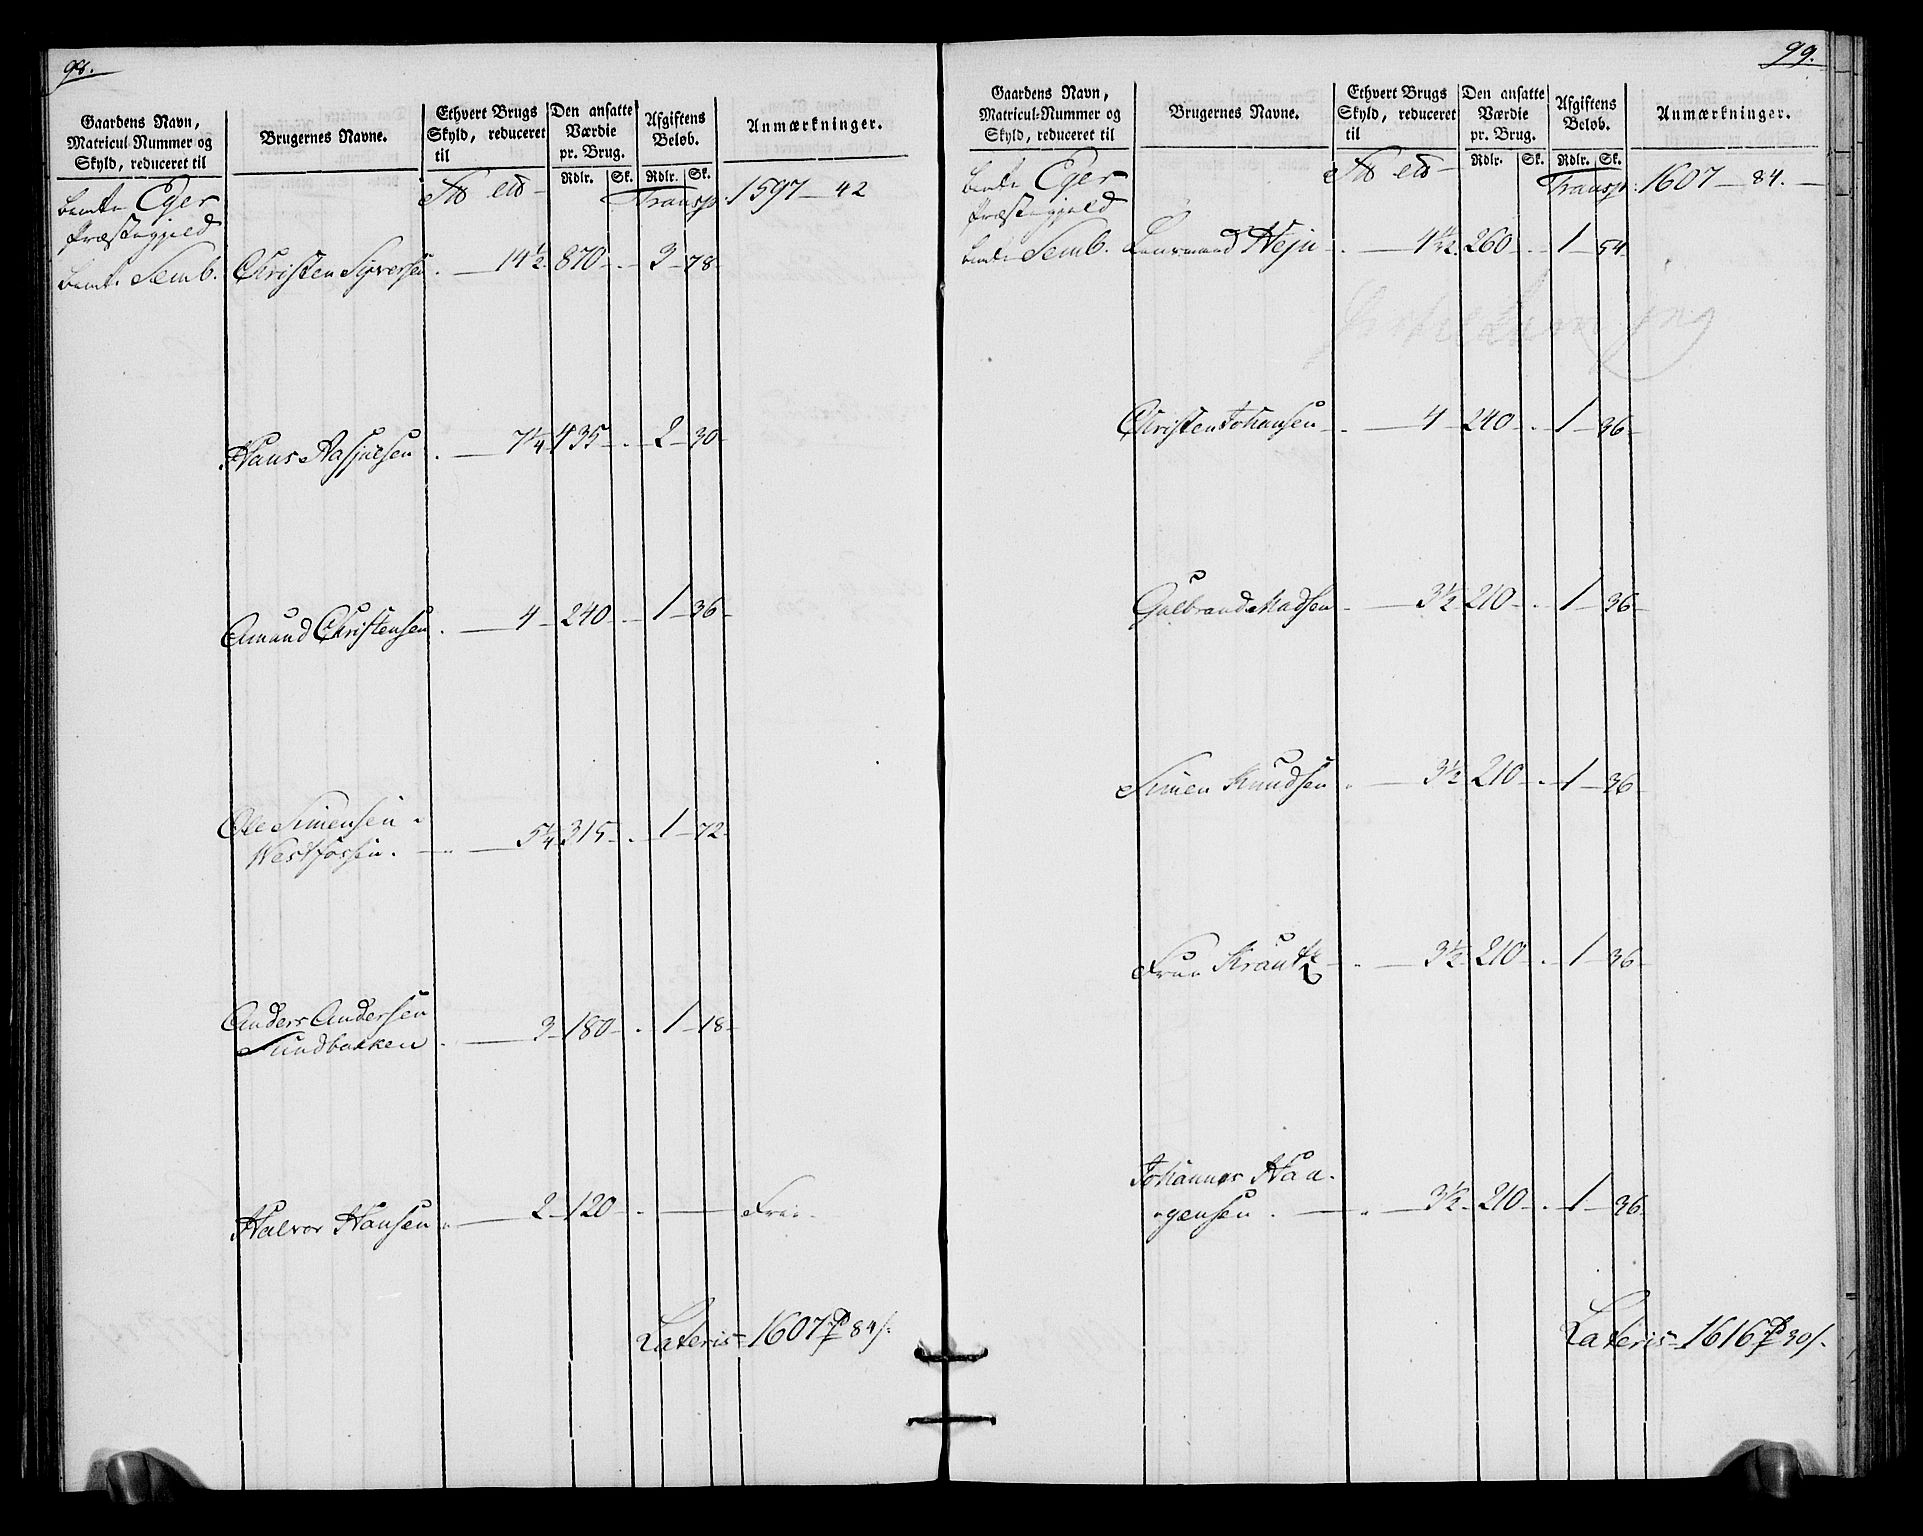 98.
Gaardens Navn, Matricul-Nummer og Skyld, reduceret til
Brugernes Navne.
Ethvert Brugs Skyld, reduceret til
Den ansatte Værdie pr. Brug.
Rdlr. Sk.
Afgiftens Beløb.
Rdlr. Sk.
Anmærkninger.
Transp. 1597 — 42
bemte Eger
Præstegjeld
bemte Semb. Christen Syversen. — 14½. 870 — . — 3 — 78 —
Hans Aasjuelsen . — 7¼ 435 — . — 2 — 30 —
Amund Christensen . — 4 — 240 — . — 1 — 36 —
Ole Simensen
Westfossen. — 5¼ 315 — . — 1 — 72 —
Anders Andersen
Sundbakken . — 3 — 180 — . — 1 — 18 —
Halvor Hansen . — 2 — 120 — . — Frie.
Lateris 1607 84/.
99.
Gaardens Navn, Matricul-Nummer og Skyld, reduceret til
Brugernes Navne.
Ethvert Brugs Skyld, reduceret til
Den ansatte Værdie pr. Brug.
Rdlr. Sk.
Afgiftens Beløb.
Rdlr. Sk.
Anmærkninger.
Transp: 1607 — 84. —
bemte Eger
Præstegjeld
bemte Semb. Lensmand — 4½. 260 — . — 1 — 54 —
Christen Johansen — . — 4 — 240 — . — 1 — 36 —
Gulbrand Madsen — . — 3½ 210 — . — 1 — 36 —
Simen Knudsen . — 3½ 210 — . — 1 — 36 —
Frue Krautz — . — 3½ 210 — . — 1 — 36 —
Johannes Haa-
gensen . — 3½ 210 — . — 1 — 36 —
Lateris 1616 30/.